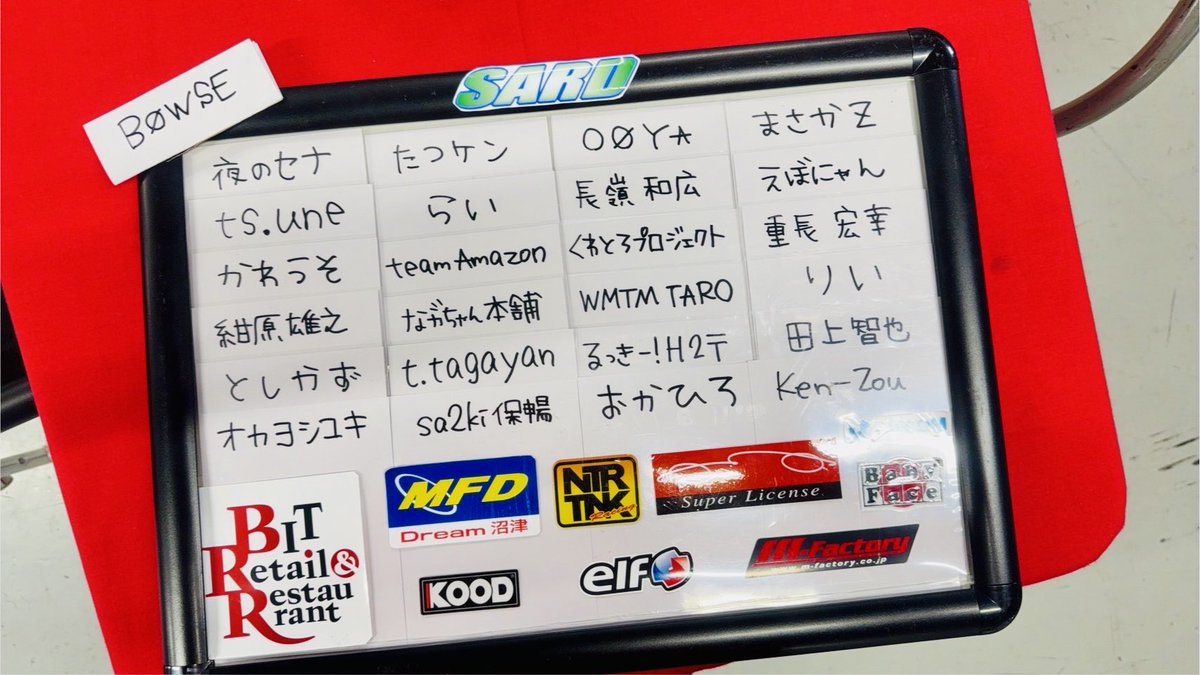 BØWSE
SARD
夜のセナ
たつケン
OØYA
まさかZ
ts.une
らい
長嶺 和広
えぼにゃん
かわうそ
teamAmazon
くわとろプロジェクト
重長 宏幸
紺原雄之
ながちゃん本舗
WMTM TARO
りい
としかず
t.tagayan
るっきー!H2T
田上智也
オカヨシユキ
sa2ki保暢
おかひろ
Ken-Zou
BIT
Retail&
Restau
rant
MFD
Dream 沼津
NTR
TNK
Racing
Super License
Baby
Face
KOOD
elf
m-Factory
www.m-factory.co.jp